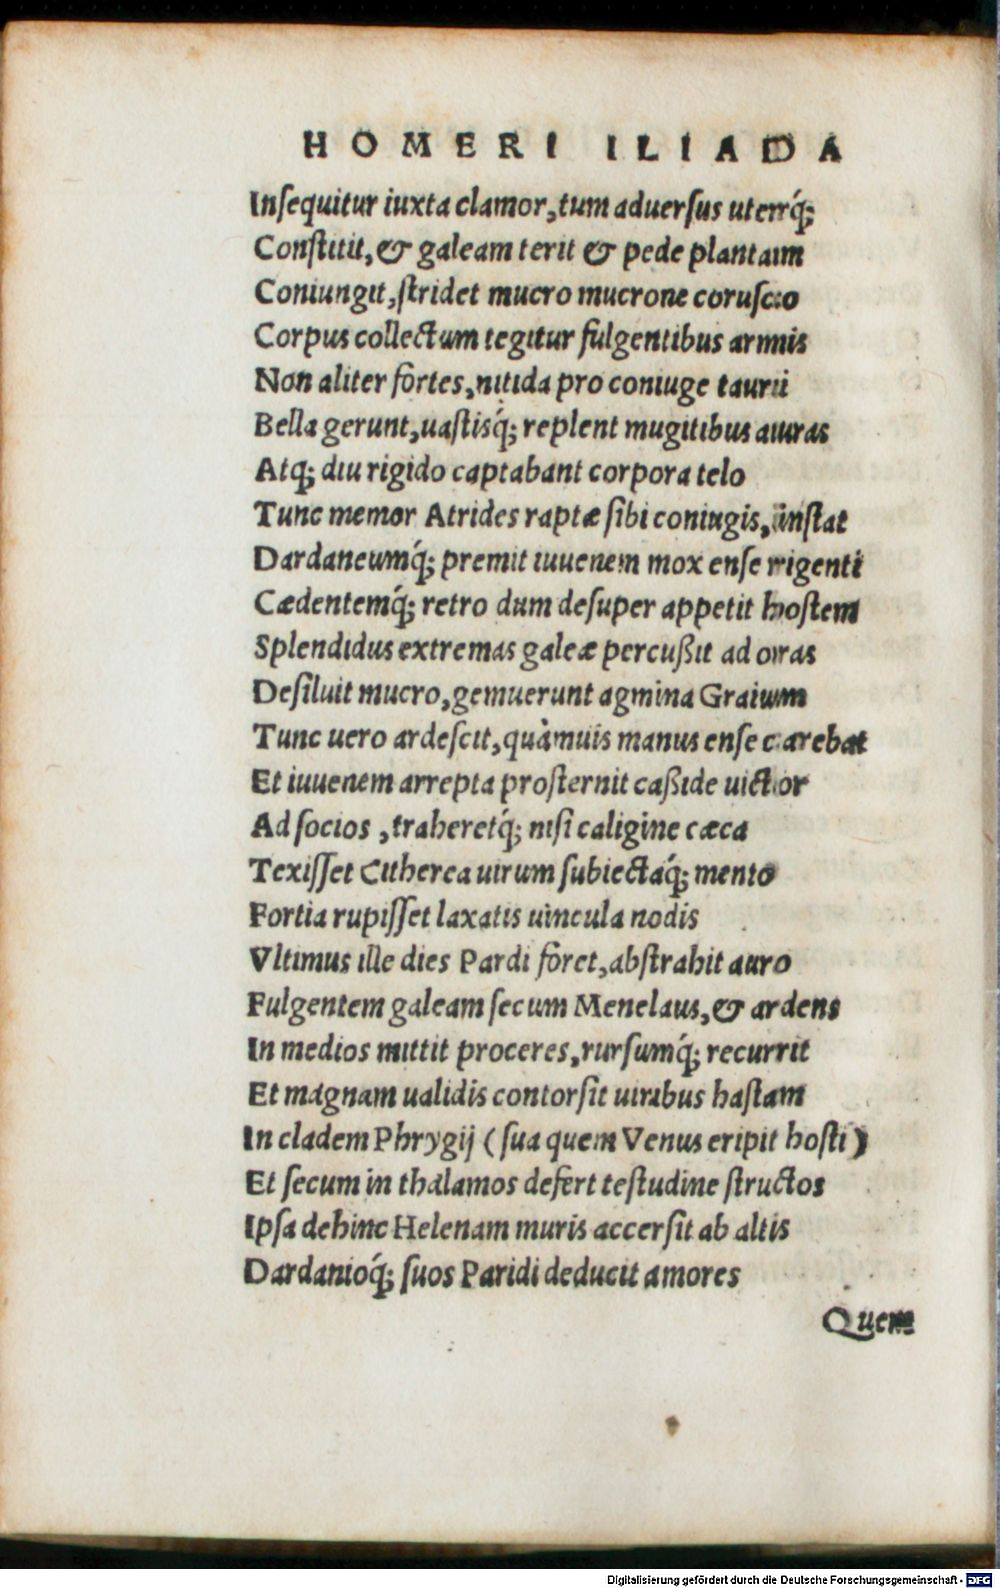 HOMERI ILIADA
Insequitur iuxta clamor, tum aduersus uterq́;
Constitit, & galeam terit & pede plantam
Coniungit, stridet mucro mucrone corusco
Corpus collectum tegitur fulgentibus armis
Non aliter fortes, nitida pro coniuge tauri
Bella gerunt, uastisq́; replent mugitibus auras
Atq; diu rigido captabant corpora telo
Tunc memor Atrides raptæ sibi coniugis, instat
Dardaneumq́; premit iuuenem mox ense rigenti
Cædentemq́; retro dum desuper appetit hostem
Splendidus extremas galeæ percußit ad oras
Desiluit mucro, gemuerunt agmina Graium
Tunc uero ardescit, quàmuis manus ense carebat
Et iuuenem arrepta prosternit caßide uictor
Ad socios, traheretq́; nisi caligine cæca
Texisset Citherea uirum subiectaq́; mento
Fortia rupisset laxatis uincula nodis
Vltimus ille dies Pardi foret, abstrahit auro
Fulgentem galeam secum Menelaus, & ardens
In medios mittit proceres, rursumq́; recurrit
Et magnam ualidis contorsit uiribus hastam
In cladem Phrygij (sua quem Venus eripit hosti)
Et secum in thalamos defert testudine structos
Ipsa dehinc Helenam muris accersit ab altis
Dardanioq́; suos Paridi deducit amores
Quem
Digitalisierung gefördert durch die Deutsche Forschungsgemeinschaft - DFG